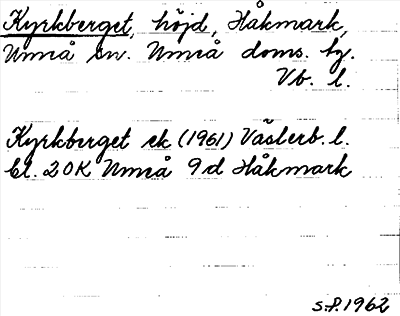 Kyrkberget, höjd, Håkmark,
Umeå sn. Umeå doms. hg.
Vb. l.
Kyrkberget ek (1961) Västerb. l.
bl. 20K Umeå 9d Håkmark
S.P. 1962